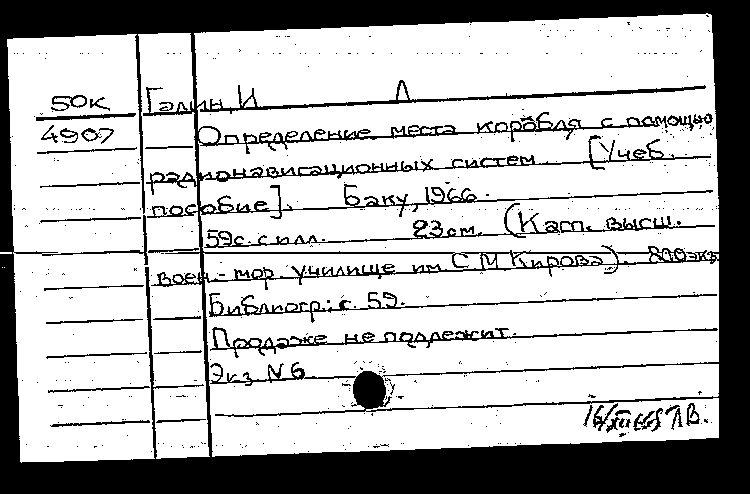 50К Галин, И Л
4907 Определение места корабля с помощью
радионавигационных систем. [Учеб.
пособие]. Баку, 1966.
59 с. с илл. 23 см. (Касп. высш.
воен.-мор. училище им. С М Кирова). 800 экз
Библиогр.: с. 59.
Продаже не подлежит.
Экз. N 6
16/XII 66 г.